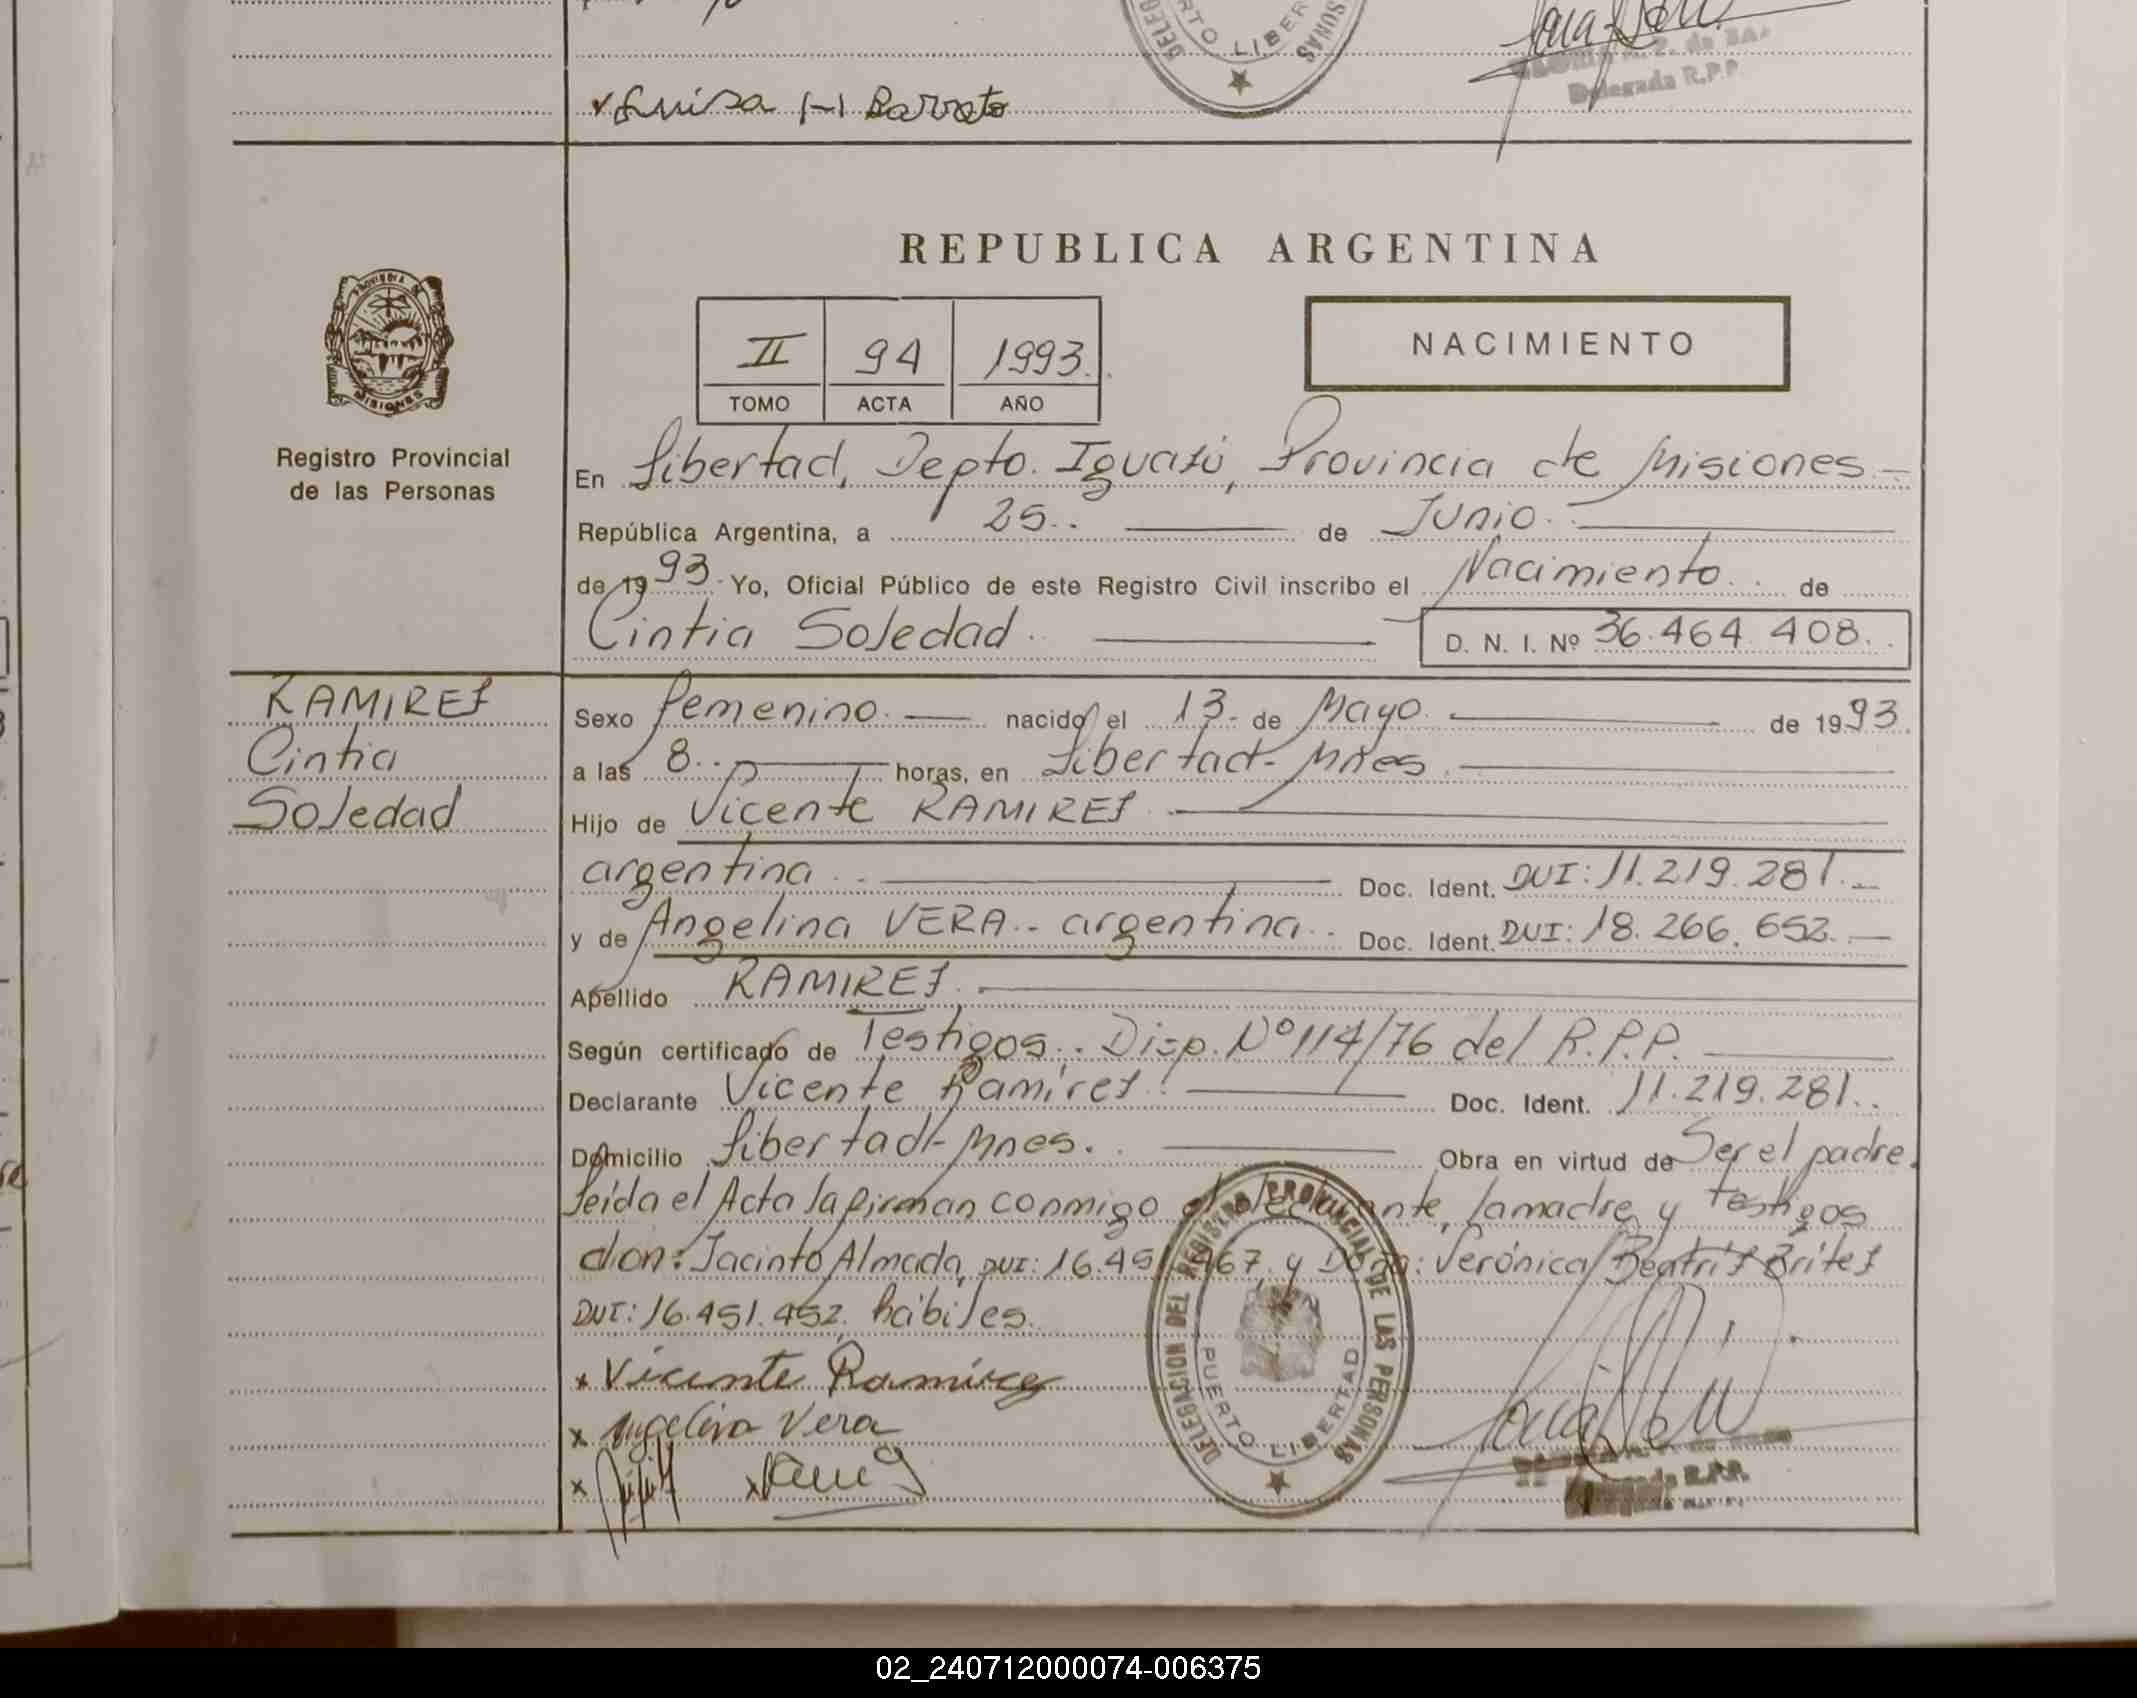 Luisa H Barreto
Delegada R.P.P.
REPUBLICA ARGENTINA
PROVINCIA
MISIONES
Registro Provincial
de las Personas
II 94 1993.
TOMO ACTA AÑO
NACIMIENTO
En Libertad, Depto. Iguazú, Provincia de Misiones
República Argentina, a 25 de Junio
de 1993. Yo, Oficial Público de este Registro Civil inscribo el Nacimiento de
Cintia Soledad D. N. I. Nº 36.464.408
RAMIREZ
Cintia
Soledad
Sexo femenino nacido el 13 de Mayo de 1993
a las 8 horas, en Libertad-Mnes
Hijo de Vicente RAMIREZ
argentina Doc. Ident. DNI: 11.219.281
y de Angelina VERA argentina Doc. Ident. DNI: 18.266.652
Apellido RAMIREZ
Según certificado de Testigos. Disp. Nº 114/76 del R.P.P.
Declarante Vicente Ramirez Doc. Ident. 11.219.281
Domicilio Libertad-Mnes. Obra en virtud de Ser el padre.
Leida el Acta la firman conmigo el declarante, la madre y testigos
don: Jacinto Almada, DNI: 16.45 967 y Doña: Verónica Beatriz Britez
DNI: 16.451.452. hábiles.
x Vicente Ramirez
x Angelina Vera
DELEGACION DEL REGISTRO PROVINCIAL DE LAS PERSONAS
PUERTO LIBERTAD
Delegada R.P.P.
02_240712000074-006375